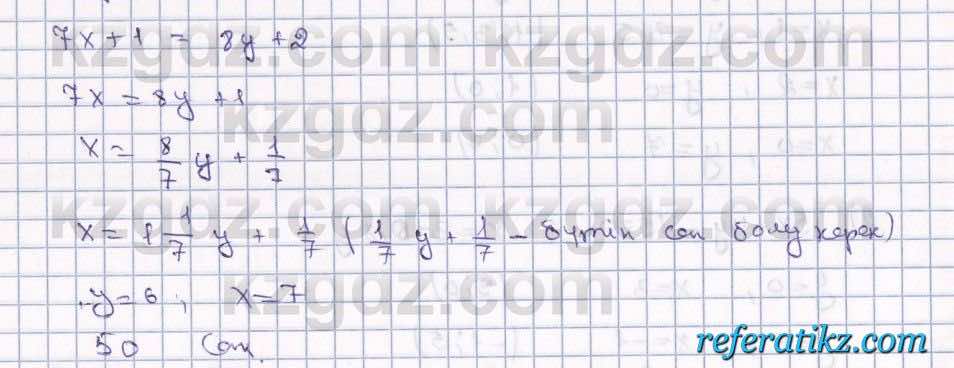 7x + 1 = 8y + 2
7x = 8y + 1
x = 8/7 y + 1/7
x = 1 1/7 y + 1/7 ( 1/7 y + 1/7 - бүтін сан болу керек)
y = 6 ; x = 7
50 сан.
kzgdz.com kzgdz.com
kzgdz.com
kzgdz.com kzgdz.com
kzgdz.com
referatikz.com